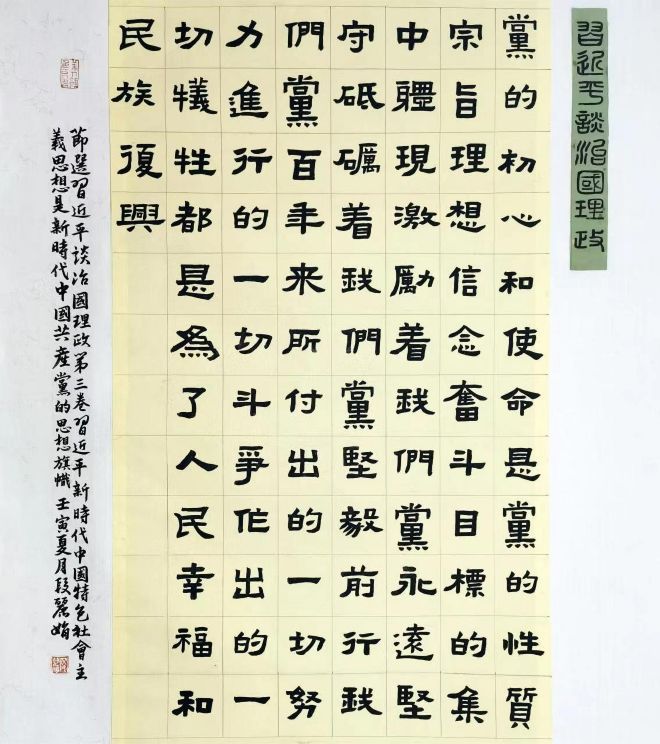 習近平談治國理政
黨的初心和使命是黨的性質
宗旨理想信念奮斗目標的集
中體現激勵着我們黨永遠堅
守砥礪着我們黨堅毅前行我
們黨百年來所付出的一切努
力進行的一切斗爭作出的一
切犧牲都是為了人民幸福和
民族復興
節選習近平談治國理政第三卷習近平新時代中國特色社會主
義思想是新時代中國共產黨的思想旗幟 壬寅夏月段麗娟